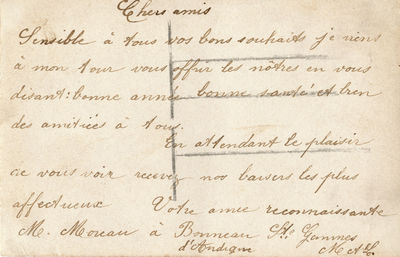 Chers amis
Sensible à tous vos bons souhaits je viens
à mon tour vous offrir les nôtres en vous
disant: bonne année bonne santé et bien
des amitiées à tous.
En attendant le plaisir
de vous voir recevez nos baisers les plus
affectueux Votre amie reconnaissante
M. Moreau à Bonneau Ste Gemmes
d'Andigné M et L